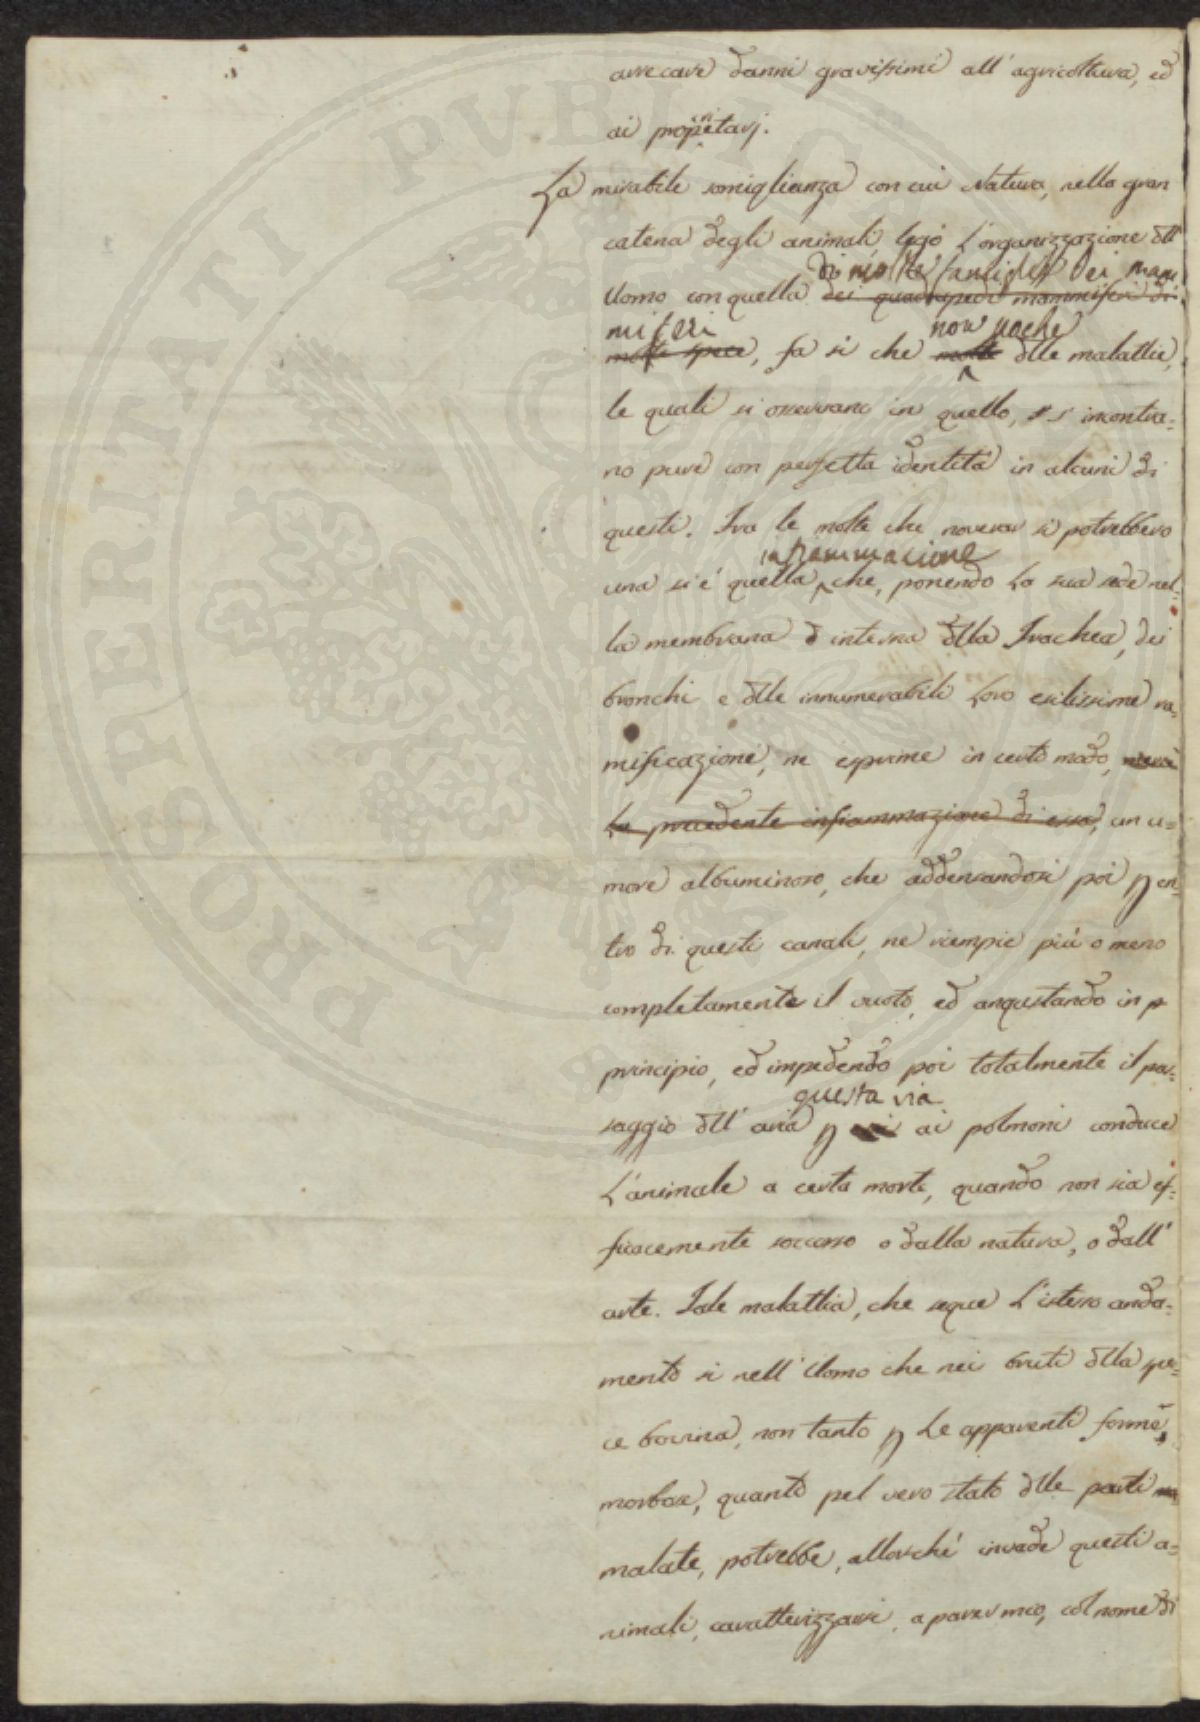 arrecare danni gravissimi all'agricoltura, ed
ai proprietarj.
La mirabile somiglianza con cui Natura, nella gran
catena degli animali, legò l'organizzazione dll'
Uomo con quella di molte famiglie dei mam
dei quadrupedi mammiferi di
miferi
molte spece, fa sì che non poche dlle malattie,
le quali si osservano in quello, s'incontra=
no pure con perfetta identità in alcuni di
questi. Tra le molte che noverar si potrebbero
una si è quella infiammazione che, ponendo la sua sede nel-
la membrana interna dlla Trachea, dei
bronchi e dlle innumerabili loro esilissime ra-
mificazioni, ne esprime in certo modo,
la precedente infiammazione di essa, un u=
more albuminoso, che addensandosi poi p en-
tro di questi canali, ne riempie più o meno
completamente il vuoto, ed angustando in p
principio, ed impedendo poi totalmente il pas-
saggio dll'aria p questa via ai polmoni conduce
l'animale a certa morte, quando non sia ef-
ficacemente soccorso o dalla natura, o dall'
arte. Tale malattia, che segue l'istesso anda-
mento sì nell'Uomo che nei bruti dlla spe-
ce bovina, non tanto p le apparenti forme,
morbose, quanto pel vero stato dlle parti
malate, potrebbe, allorché invade questi a=
nimali, caratterizzarsi, a parer mio, col nome di
PROSPERITATI PUBLICAE